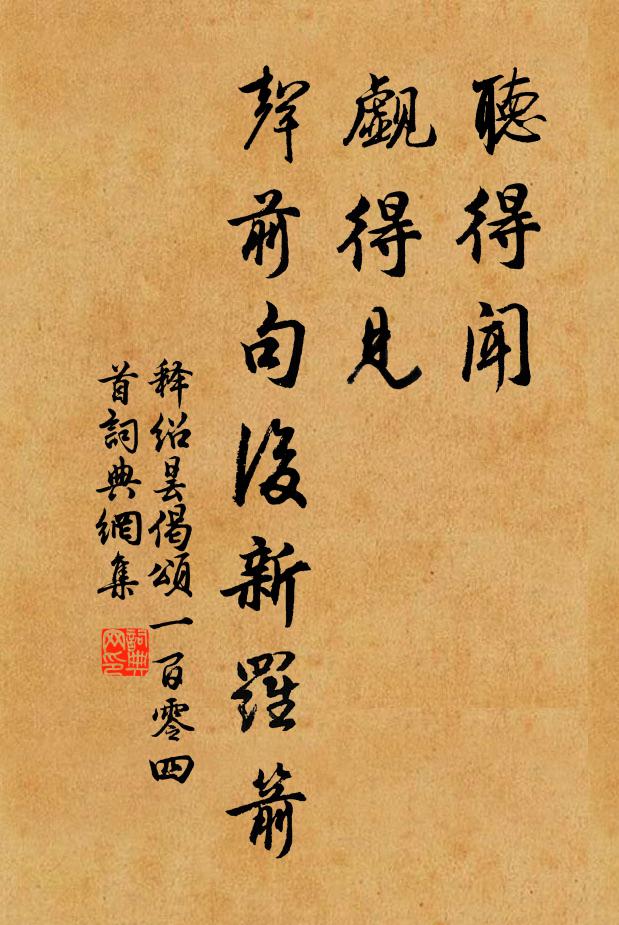 聽得聞
覷得見
聲前句後新羅箭
釋紹曇偈頌一百零四
首詞典網集
詞典
网印